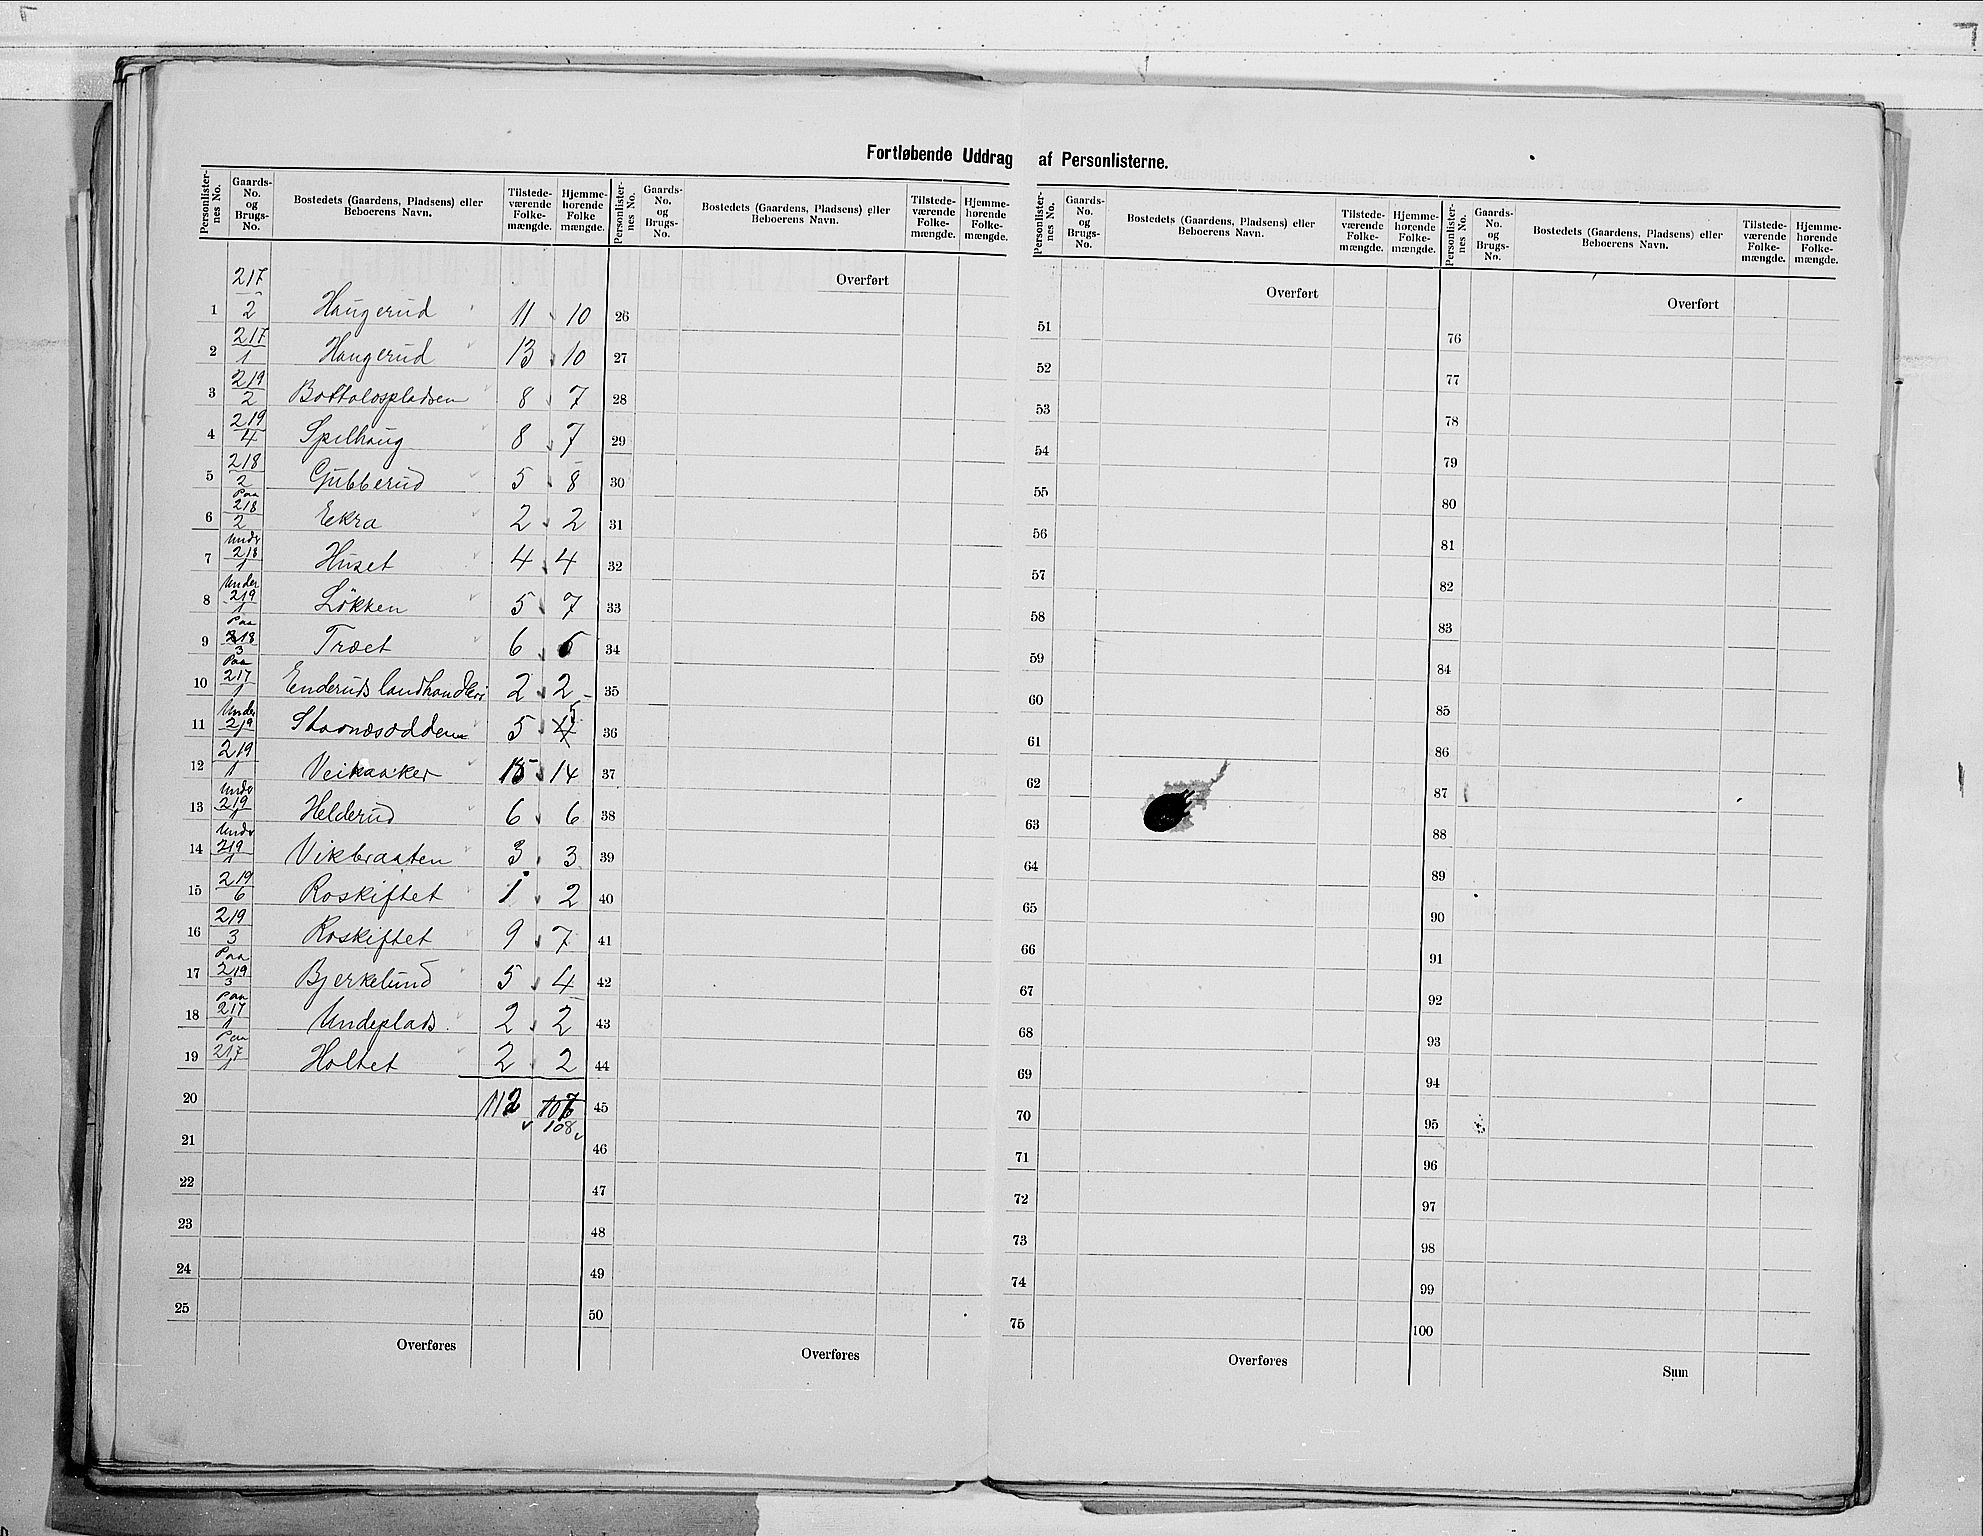 Fortløbende Uddrag af Personlisterne.
Personlister-nes No. Gaards-No. og Brugs-No. Bostedets (Gaardens, Pladsens) eller Beboerens Navn. Tilstede-værende Folke-mængde. Hjemme-hørende Folke mængde. Personlister-nes No. Gaards-No. og Brugs-No. Bostedets (Gaardens, Pladsens) eller Beboerens Navn. Tilstede-værende Folke-mængde. Hjemme-hørende Folke-mængde. Personlister-nes No. Gaards-No. og Brugs-No. Bostedets (Gaardens, Pladsens) eller Beboerens Navn. Tilstede-værende Folke-mængde. Hjemme-hørende Folke-mængde. Personlister-nes No. Gaards-No. og Brugs-No. Bostedets (Gaardens, Pladsens) eller Beboerens Navn. Tilstede-værende Folke-mængde. Hjemme-hørende Folke-mængde.
1 217/2 Haugerud 11 10
2 217/1 Haugerud 13 10
3 219/2 8 7
4 219/4 Spilhaug 8 7
5 218/2 Gubberud 5 8
6 Paa 218/2 Ekra 2 2
7 Undr 218/1 Huset 4 4
8 Under 219/1 Løkken 5 7
9 Paa 218/3 Træet 6 6
10 Paa 217/1 Enderuds landhandleri 2 2
11 Under 219 5 4 5
12 219/1 Veikaaker 15 14
13 Undr 219/1 Helderud 6 6
14 Undr 219/1 Vikbraaten 3 3
15 219/6 Roskiftet 1 2
16 219/3 Roskiftet 9 7
17 Paa 219/3 Bjerkelund 5 4
18 Paa 217/1 Undeplads 2 2
19 Paa 217/1 Holtet 2 2
20 112 107
108
21
22
23
24
25
Overføres
Overført
26
27
28
29
30
31
32
33
34
35
36
37
38
39
40
41
42
43
44
45
46
47
48
49
50
Overføres
Overført
51
52
53
54
55
56
57
58
59
60
61
62
63
64
65
66
67
68
69
70
71
72
73
74
75
Overføres
Overført
76
77
78
79
80
81
82
83
84
85
86
87
88
89
90
91
92
93
94
95
96
97
98
99
100
Sum